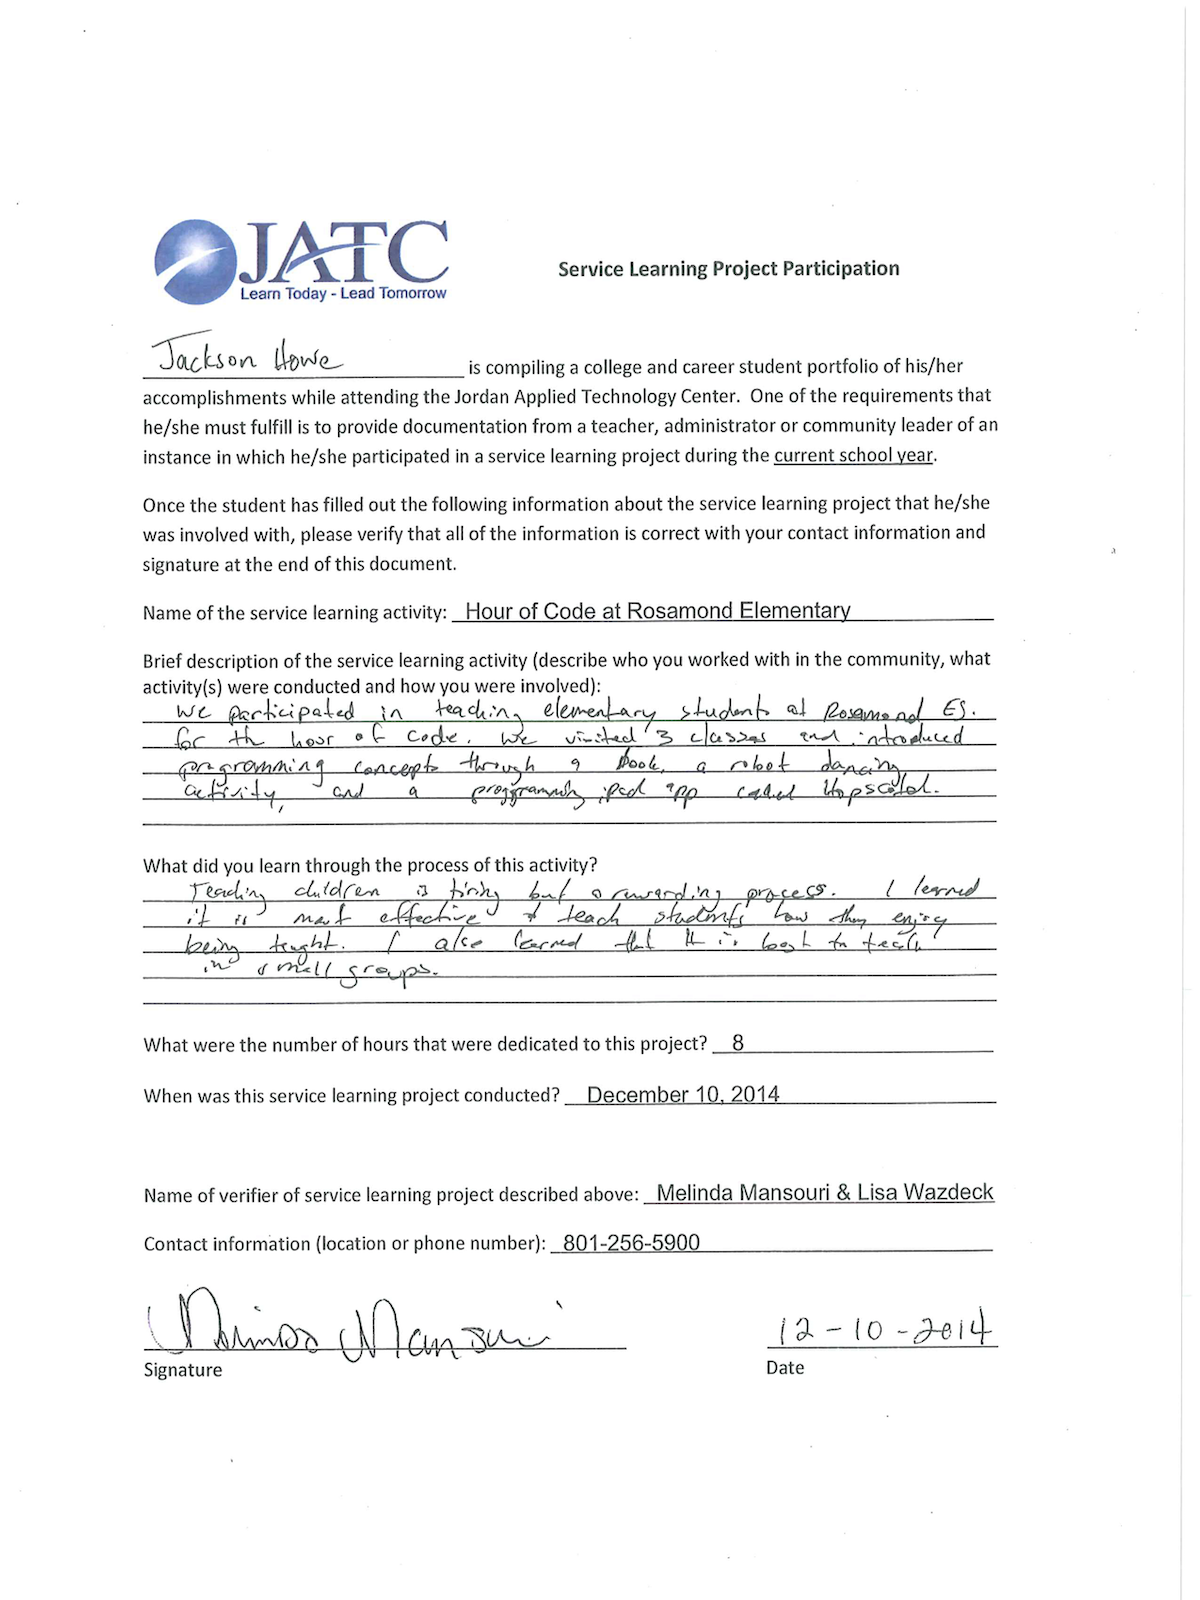 JATC
Learn Today - Lead Tomorrow
Service Learning Project Participation
Jackson Howe is compiling a college and career student portfolio of his/her
accomplishments while attending the Jordan Applied Technology Center. One of the requirements that
he/she must fulfill is to provide documentation from a teacher, administrator or community leader of an
instance in which he/she participated in a service learning project during the current school year.
Once the student has filled out the following information about the service learning project that he/she
was involved with, please verify that all of the information is correct with your contact information and
signature at the end of this document.
Name of the service learning activity: Hour of Code at Rosamond Elementary
Brief description of the service learning activity (describe who you worked with in the community, what
activity(s) were conducted and how you were involved):
We participated in teaching elementary students at Rosamond ES.
for th hour of code. We visited 3 classes and introduced
programming concepts through a book, a robot dancing
activity, and a proggramming ipad app called Hopscotch.
What did you learn through the process of this activity?
Teaching children is tiring but a rewarding process. I learned
it is most effective to teach students how they enjoy
being taught. I also learned that it is best to teach
in small groups.
What were the number of hours that were dedicated to this project? 8
When was this service learning project conducted? December 10, 2014
Name of verifier of service learning project described above: Melinda Mansouri & Lisa Wazdeck
Contact information (location or phone number): 801-256-5900
Mansouri
12-10-2014
Signature
Date